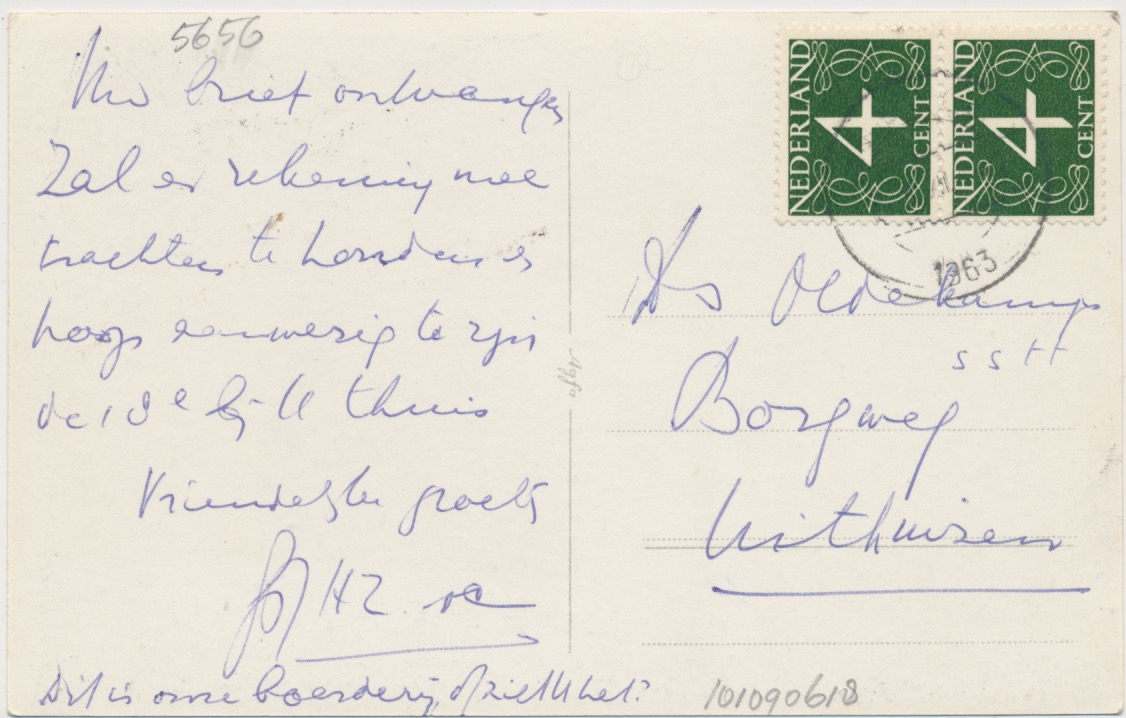 5656
Uw brief ontvangen
Zal er rekening mee
trachten te houden en
hoop aanwezig te zijn
de 18e bij U thuis
Vriendelijke groets
HZ.
Dit is onze boerderij, of ziet U het?
Agfa
NEDERLAND
4
CENT
NEDERLAND
4
CENT
1963
Ds Oldekamp
Borgweg
Uithuizen
101090618